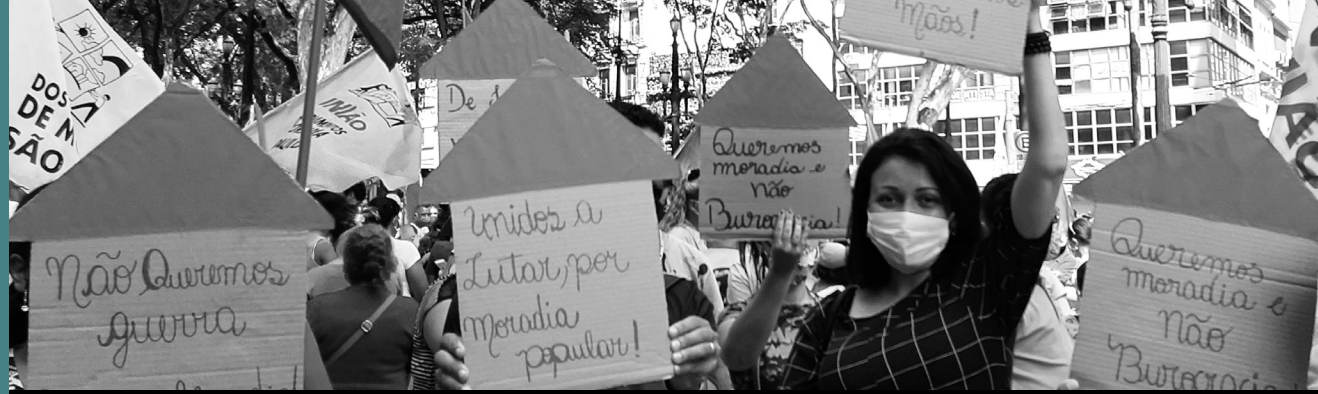 DOS
DE M
SÃO
Não Queremos
guerra
De
Unidos a
Lutar, por
Moradia
popular!
Queremos
moradia e
não
Burocracia!
Mãos!
Queremos
moradia e
não
Burocracia!